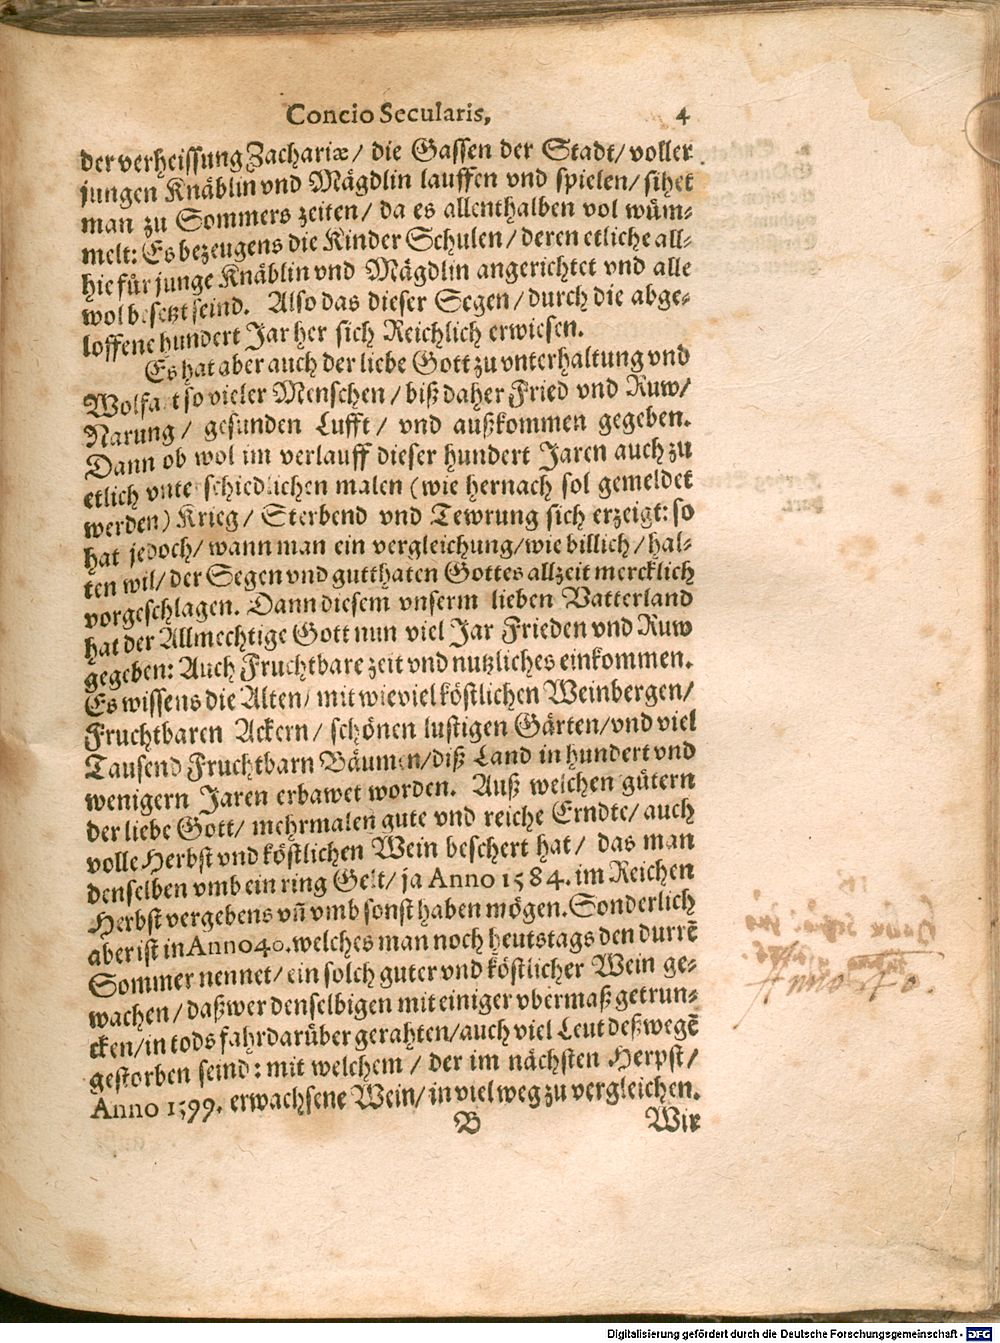 Concio Secularis, 4
der verheissung Zachariæ / die Gassen der Stadt / voller
jungen Knäblin vnd Mägdlin lauffen vnd spielen / sihet
man zu Sommers zeiten / da es allenthalben vol wüm-
melt: Es bezeugens die Kinder Schulen / deren etliche all-
hie für junge Knäblin vnd Mägdlin angerichtet vnd alle
wol besetzt seind. Also das dieser Segen / durch die abge-
loffene hundert Jar her sich Reichlich erwiesen.
Es hat aber auch der liebe Gott zu vnterhaltung vnd
Wolfart so vieler Menschen / biß daher Fried vnd Ruw /
Narung / gesunden Lufft / vnd außkommen gegeben.
Dann ob wol im verlauff dieser hundert Jaren auch zu
etlich vnterschiedlichen malen (wie hernach sol gemeldet
werden) Krieg / Sterbend vnd Tewrung sich erzeigt: so
hat jedoch / wann man ein vergleichung / wie billich / hal-
ten wil / der Segen vnd gutthaten Gottes allzeit mercklich
vorgeschlagen. Dann diesem vnserm lieben Vatterland
hat der Allmechtige Gott nun viel Jar Frieden vnd Ruw
gegeben: Auch Fruchtbare zeit vnd nutzliches einkommen.
Es wissens die Alten / mit wieviel köstlichen Weinbergen /
Fruchtbaren Ackern / schönen lustigen Gärten / vnd viel
Tausend Fruchtbarn Bäumen / diß Land in hundert vnd
wenigern Jaren erbawet worden. Auß welchen gütern
der liebe Gott / mehrmalen gute vnd reiche Erndte / auch
volle Herbst vnd köstlichen Wein beschert hat / das man
denselben vmb ein ring Gelt / ja Anno 1584. im Reichen
Herbst vergebens vñ vmb sonst haben mögen. Sonderlich
aber ist in Anno 40. welches man noch heutstags den durrẽ
Sommer nennet / ein solch guter vnd köstlicher Wein ge-
wachen / daß wer denselbigen mit einiger vbermaß getrun-
cken / in tods fahr darüber gerahten / auch viel Leut deßwegẽ
gestorben seind: mit welchem / der im nächsten Herpst /
Anno 1599. erwachsene Wein / in viel weg zu vergleichen.
B Wir
Anno 40.
Digitalisierung gefördert durch die Deutsche Forschungsgemeinschaft - DFG